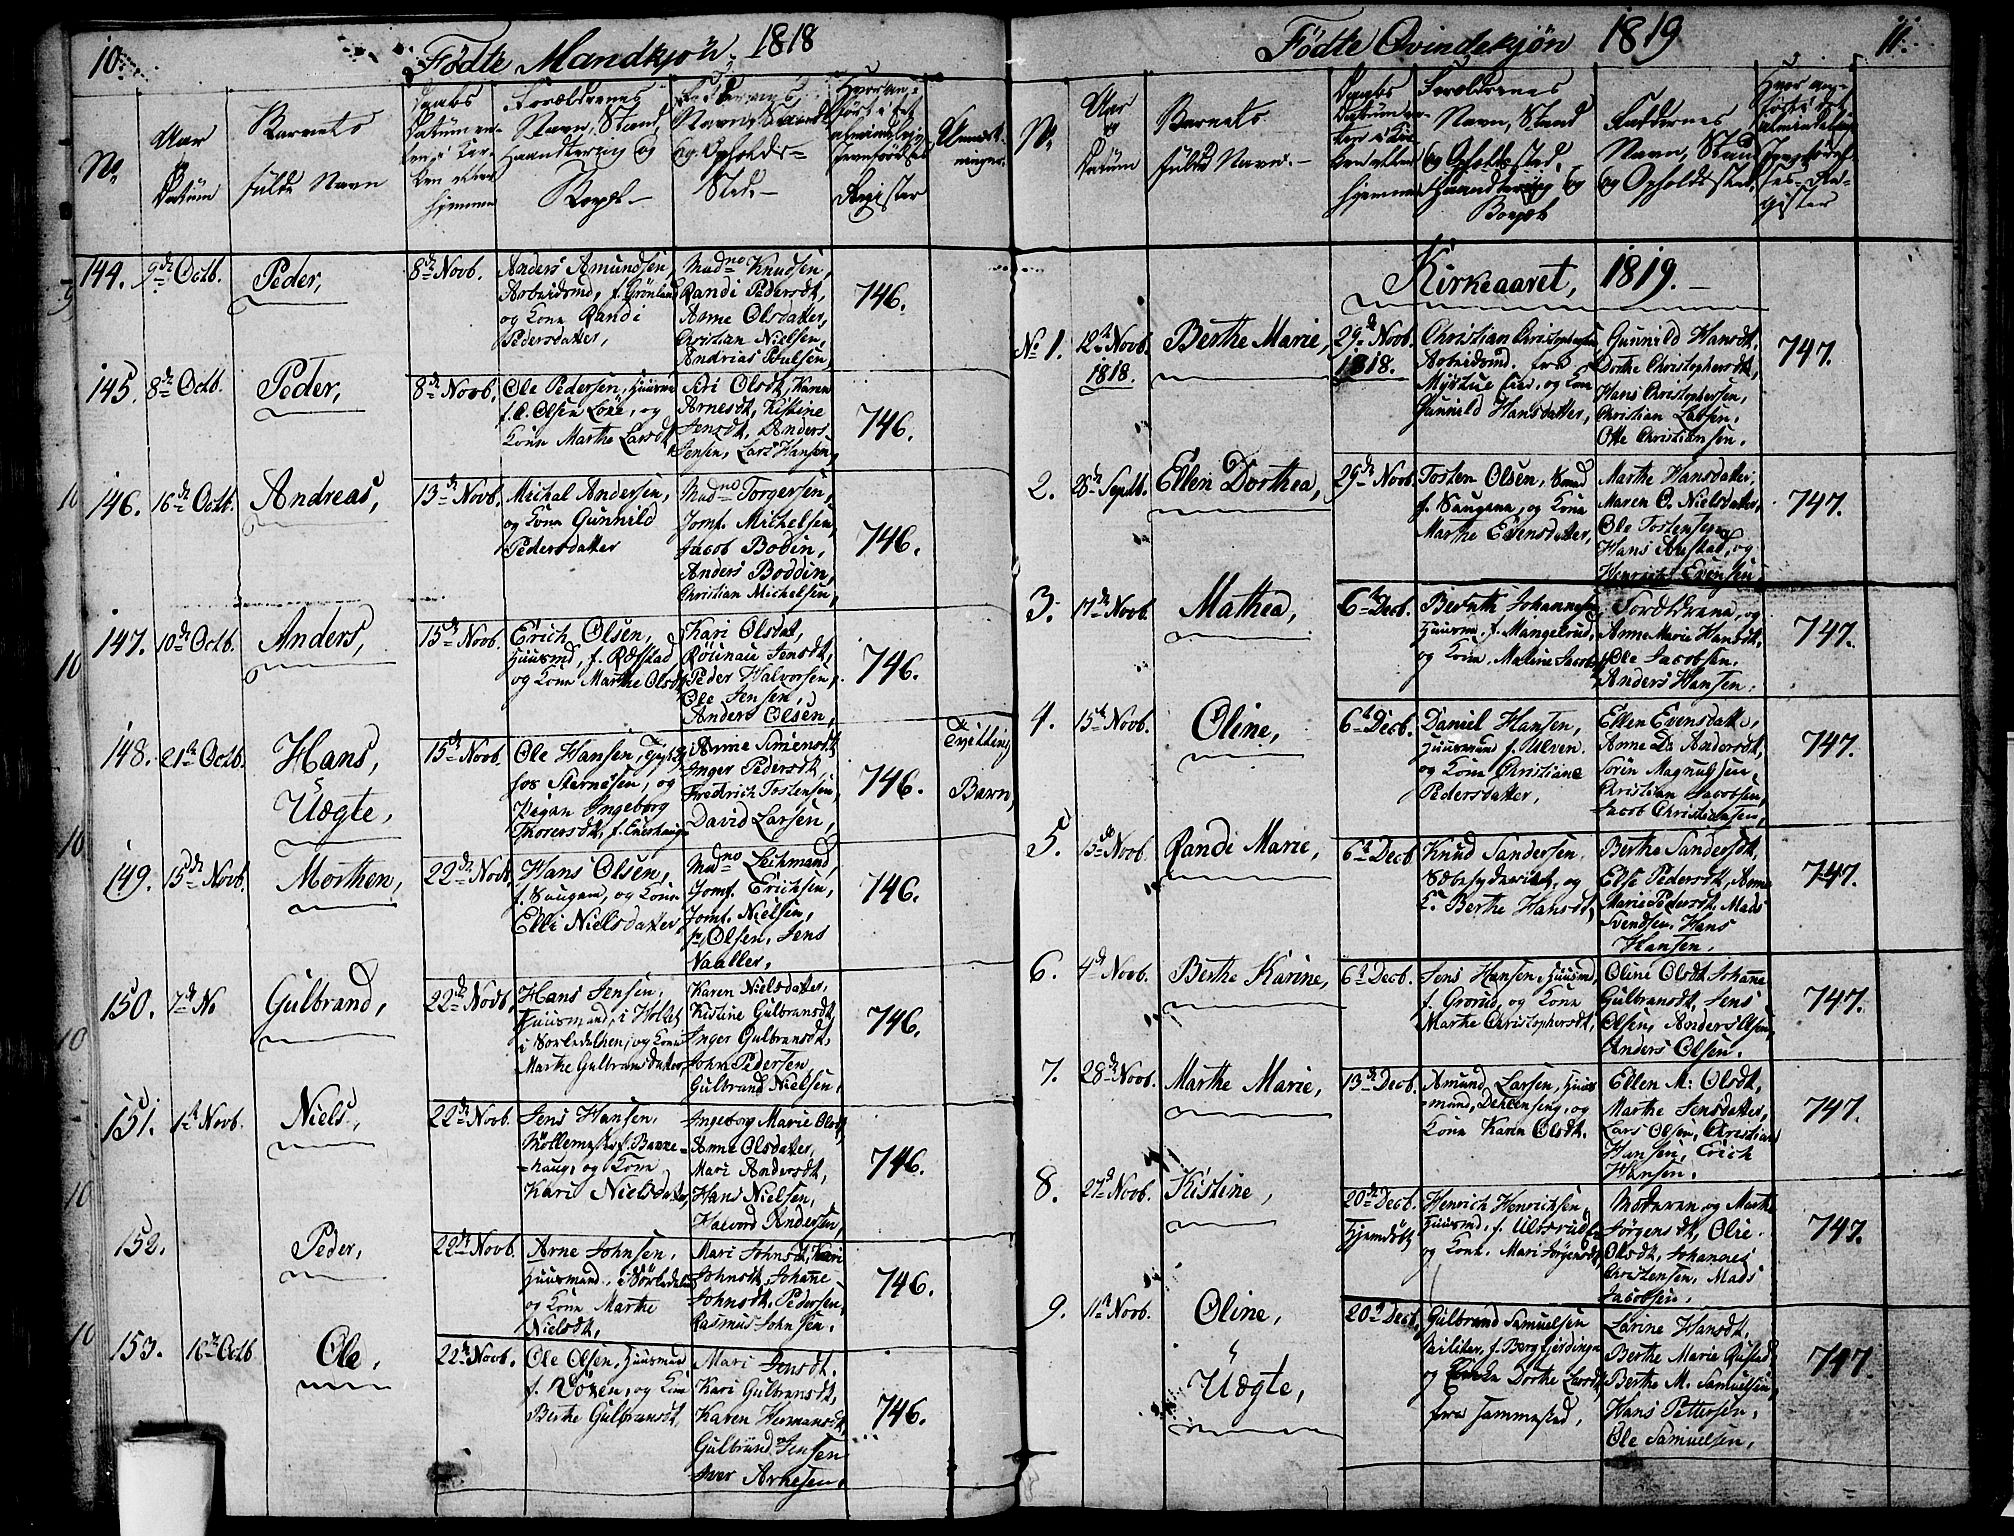 10
Födte Mandkjön. 1818
No
Aar
og
Datum
Barnets
fulde Navn
Daabs
Datum en-
ten i Kir-
ken eller
hjemme
Forældrenes
Navn, Stand,
Haandtering og
Bopl.
Faddernes
Navn, Stand
og Opholds-
Sted.
Hvor an-
fört i det
almindelige
Jevnförelses
Register
Anmærk-
ninger.
144. 9de Octb. Peder, 8de Novb.
Anders Amundsen,
Arbeidsmd, f. Grönland
og Kone Randi
Pedersdatter,
Madmo Knudsen,
Randi Pedersdt,
Anne Olsdatter,
Christian Nielsen,
Andrias Poulsen,
746.
145. 8de Octb. Peder, 8de Novb.
Ole Pedersen, Huusmd
f. O. Olsen Löke, og
Kone Marthe Larsdt
Siri Olsdt, Karen
Arnesdt, Kistine
Jensdt, Anders
Jensen, Lars Hansen,
746.
146. 16de Octb. Andreas, 13de Novb.
Michal Andersen,
og Kone Gunnild
Pedersdatter
Madmo Torgersen,
Jomf. Michelsen,
Jacob Bodin,
Anders Boddin,
Christian Michelsen,
746.
147. 10de Octb. Anders, 15de Novb.
Erich Olsen,
Huusmd, f. Refstad,
og Kone Marthe Olsdt
Kari Olsdat,
Rönnau Jensdt,
Peder Halvorsen,
Ole Jensen,
Anders Olsen,
746.
148. 21de Octb. Hans,
Uægte,
15de Novb.
Ole Hansen,
hos Stærnesen, og
Pigen Ingeborg
Thoresdt, f. Enerhaugen
Anne Simensdt
Inger Pedersdt,
Frederich Tostensen,
David Larsen,
746.
Tvilling
Barn,
149. 15de Novb. Morthen, 22de Novb.
Hans Olsen,
f. Saugene, og Kone
Elli Nielsdatter,
Madmo Leihmand,
Jomf. Erichsen,
Jomf. Nielsen,
Olsen, Jens
Vaaller,
746.
150. 7de No Gulbrand, 22de Novb.
Hans Jensen,
Huusmand, i
i Sörkedalen, og Kone
Marthe Gulbransdatter,
Karen Nielsdatter,
Kistine Gulbransdt,
Inger Gulbransdt,
John Pedersen
Gulbrand Nielsen,
746.
151. 1te Novb. Niels, 22de Novb.
Jens Hansen,
Möllemester f. Banne-
-haug, og Kone
Kari Nielsdatter,
Ingeborg Marie Olsdt,
Anne Olsdatter,
Mari Andersdt,
Hans Nielsen,
Halvord Andersen,
746.
152. Peder, 22de Novb.
Arne Johnsen,
Huusmand, i Sörkedalen
og Kone Marthe
Nielsdt,
Mari Johnsdt, Kari
Johnsdt, Johanne
Johnsdt, Pedersen,
Rasmus Johnsen.
746.
153. 16de Octb Ole, 22de Novb.
Ole Olsen, Huusmand
f. Lören, og Kone
Berthe Gulbransdt,
Mari Jensdt.
Kari Gulbransdt,
Karen Hermansdt,
Gulbrund Jensen
Iver Arnesen,
746.
Födte Qvindekjön 1819
11
No
Aar
og
Datum
Barnets
fulde Navn.
Daabs
Datum en-
ten i Kir-
ken eller
hjemme
Forældrenes
Navn, Stand
og Opholdssted.
Haandtering og
Bopæl
Faddernes
Navn, Stand
og Opholdssted.
Hvor an-
förts i det
almindelige
Jevnförel-
ses-Re-
gister
Kirkeaaret, 1819.
No 1. 12te Novb.
1818.
Berthe Marie,
29de Novb.
1818.
Christian Christophersen
Arbeidsmd. fra
og Kone
Gunnild Hansdatter,
Gunnild Hansdt,
Dorthe Christophersdt,
Hans Christophersen,
Christian Larsen,
Otte Christiansen.
747.
2. 28de Septb. Ellen Dorthea, 29de Novb.
Tosten Olsen,
f. Saugene, og Kone
Marthe Evensdatter,
Marthe Hansdatter,
Maren O. Nielsdatter,
Ole Tostensen,
Hans og
Henrich Evensen
747.
3. 17de Novb. Mathea, 6te Decb.
Bernth Johannesen
Huusmd, f. Mangelrud,
og Kone Malene Jacobsdt
Forældrene, og
Anne Marie Hansdt,
Ole Jacobsen,
Anders Hansen,
747.
4. 15de Novb. Oline, 6te Decb.
Daniel Hansen,
Huusmand f. Ulven
og Kone Christiane
Pedersdatter,
Ellen Evensdatter,
Anne D. Andersdt,
Sören Magnussen,
Christian Jacobsen,
Jacob Christiansen,
747.
5. 15de Novb. Randi Marie, 6te Decb
Knud Sandersen,
Sæbesyderiet, og
K. Berthe Hansdt,
Berthe Sandersdt,
Else Pedersdt, Anne
Marie Pedersdt, Mads
Svendsen, Hans
Hansen,
747.
6. 4de Novb. Berthe Karine, 6te Decb.
Jens Hansen, Huusmd,
f. Grorud, og Kone
Marthe Christophersdt,
Oline Olsdt, Johanne
Gulbransdt, Jens
Olsen, Anders Olsen,
Anders Olsen.
747.
7. 28de Novb. Marthe Marie, 13de Decb.
Amund Larsen, Huus
-mand, Dehlenseng, og
Kone Karen Olsdt.
Ellen M: Olsdt,
Marthe Jensdatter,
Lars Olsen, Christian
Hansen, Erich
Hansen.
747.
8. 27de Novb. Kistine,
20de Decb.
Hjemdöbt
Henrich Henrichsen,
Huusmd, f. Ulsrud
og Kone. Mari Jörgensdt,
Moderen, og Marthe
Jörgensdt, Olie
Olsdt, Johannes
Christensen, Mads
Jacobsen,
747.
9. 11te Novb. Oline,
Uægte,
20de Decb.
Gulbrand Samuelsen
Militær, f. Bergfjerdingen
og Dorthe Larsdt,
fra Jammestad,
Larine Hansdt,
Berthe Marie Rustad,
Berthe M. Samuelsen,
Hans Pettersen,
Ole Samuelsen,
747.